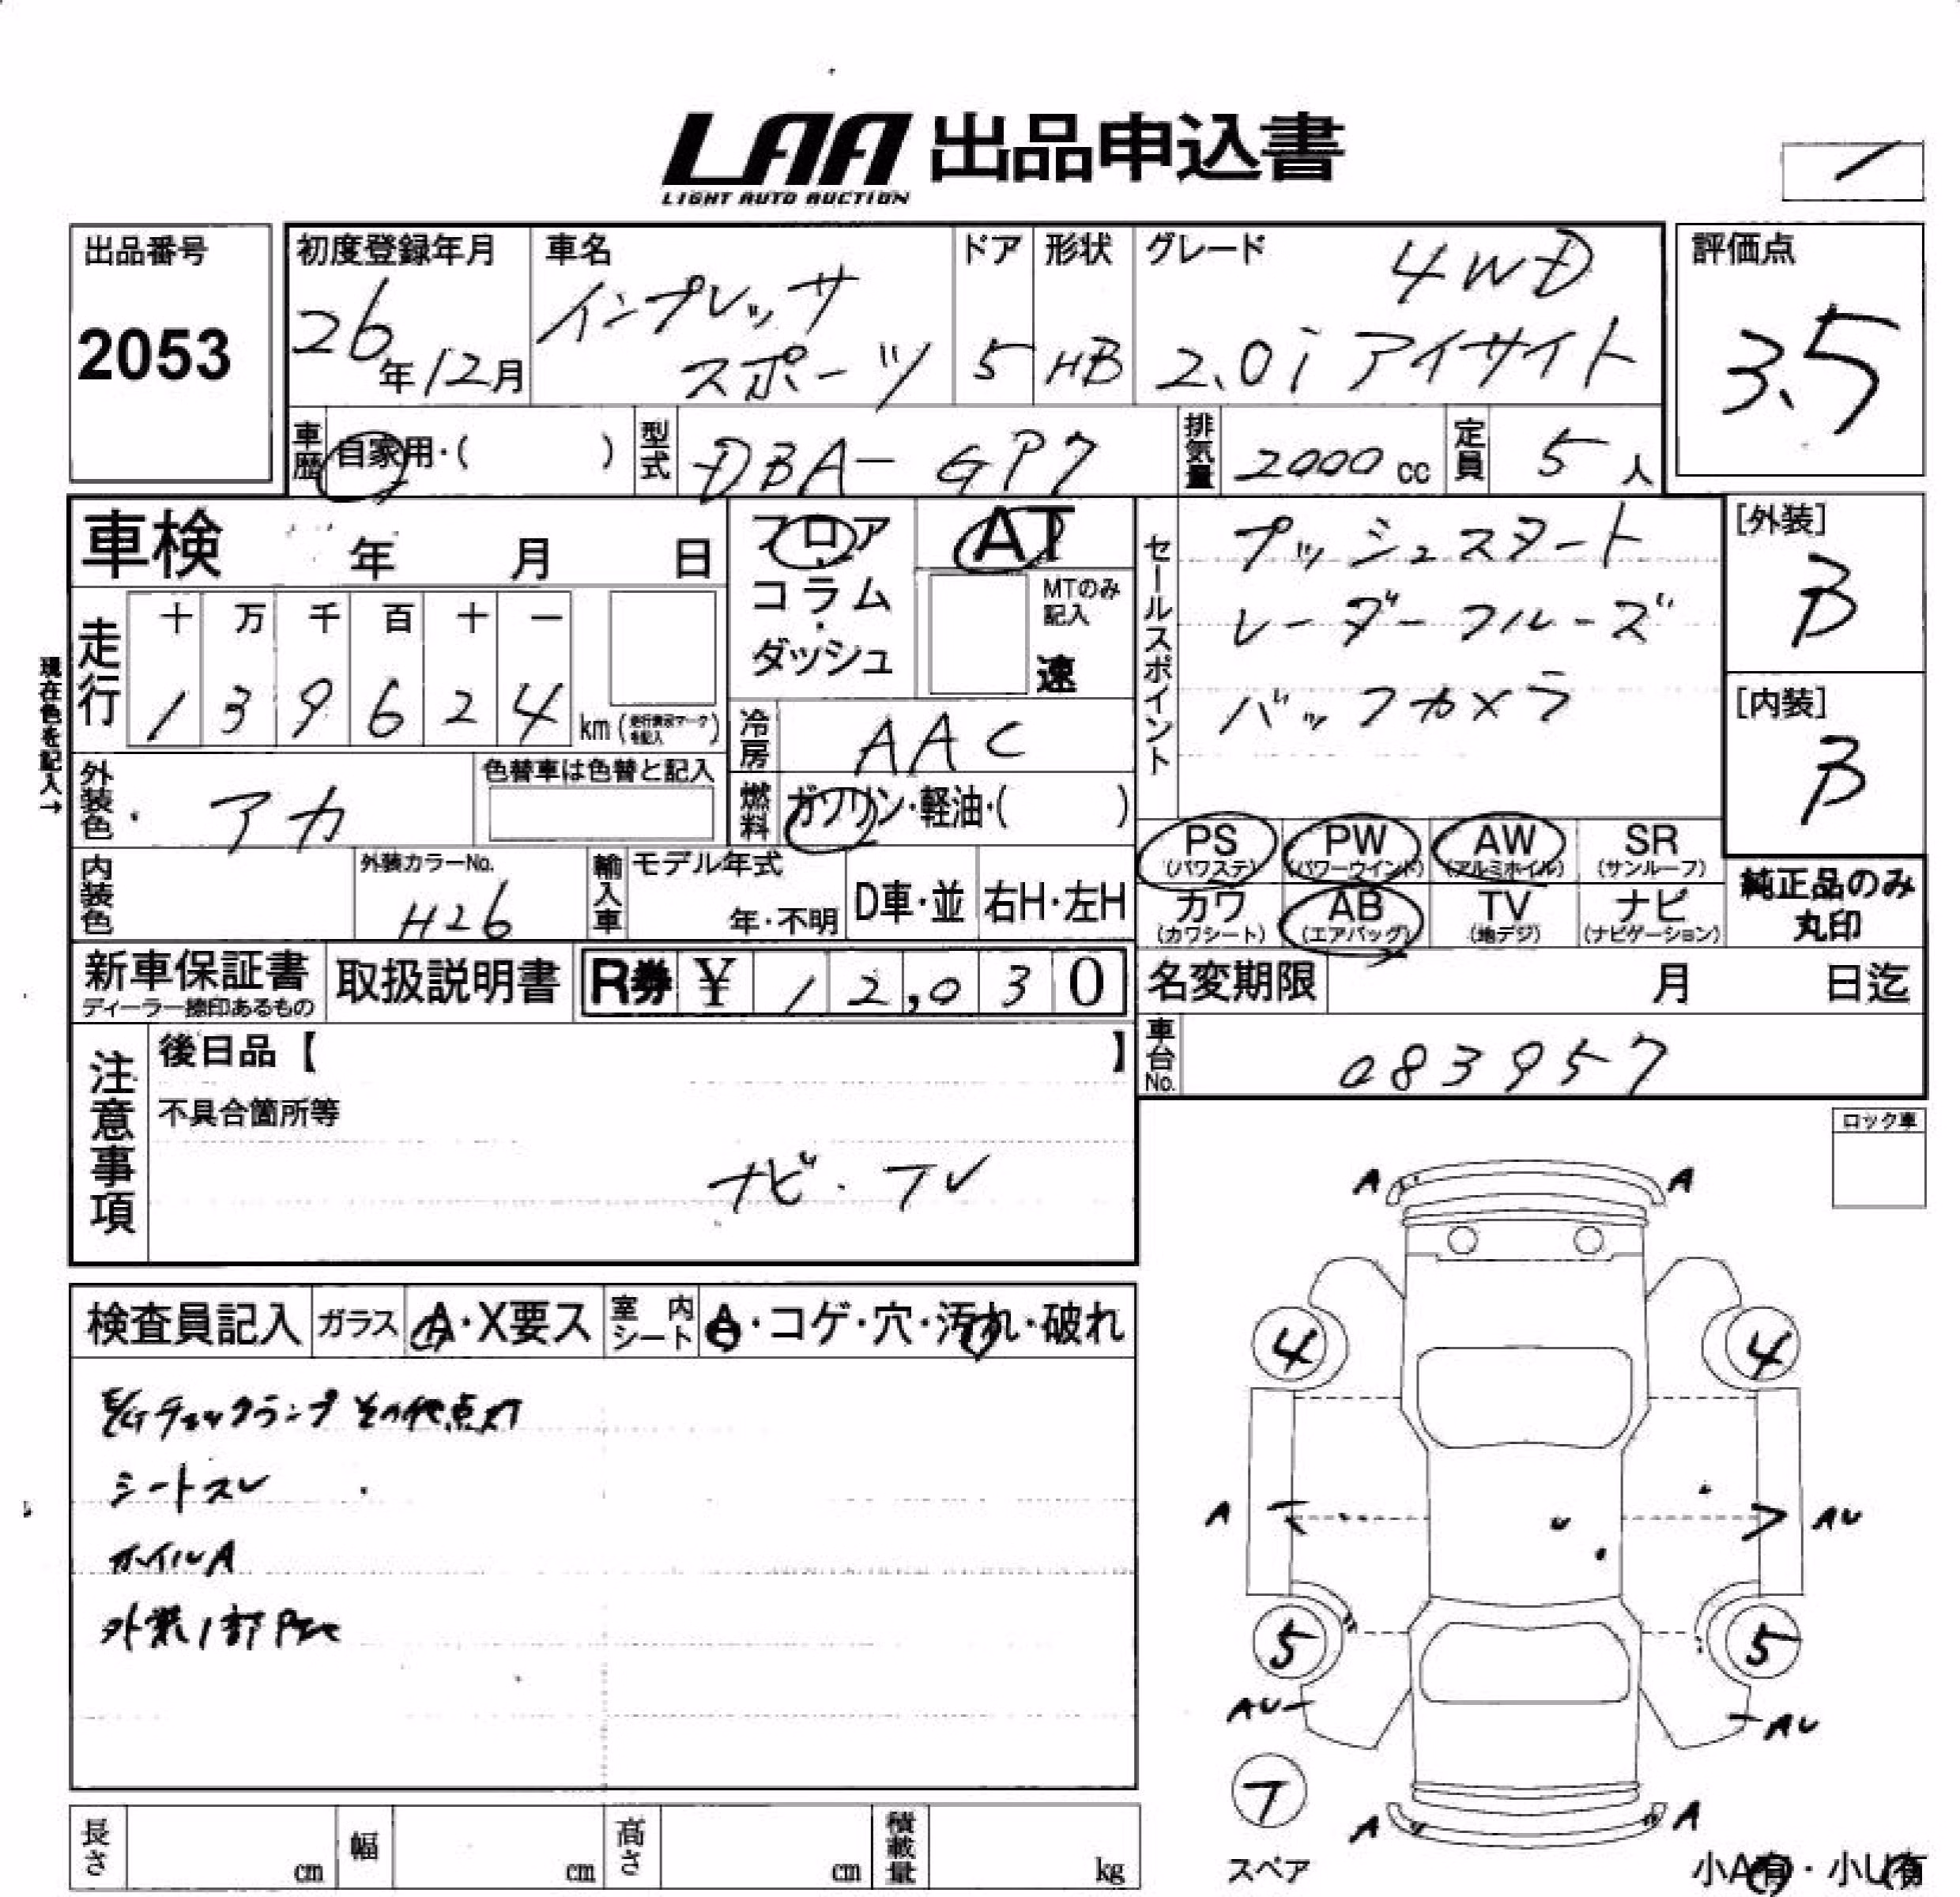 LAA 出品申込書
LIGHT AUTO AUCTION
出品番号
2053
初度登録年月
26年12月
車名
インプレッサ
スポーツ
ドア
5
形状
HB
グレード
4WD
2.0i アイサイト
評価点
3.5
車歴
自家用・( )
型式
DBA-GP7
排気量
2000 cc
定員
5 人
車検 年 月 日
現在色を記入→
走行
十 万 千 百 十 一
1 3 9 6 2 4 km
フロア
・
コラム
・
ダッシュ
AT
MTのみ
記入
速
冷房
AAC
燃料
ガソリン・軽油・( )
セールスポイント
プッシュスタート
レーダークルーズ
バックカメラ
[外装]
B
[内装]
B
外装色
アカ
色替車は色替と記入
内装色
外装カラーNo.
H26
輸入車
モデル年式
年・不明
D車・並
右H・左H
PS
(パワステ)
PW
(パワーウインド)
AW
(アルミホイル)
SR
(サンルーフ)
カワ
(カワシート)
AB
(エアバッグ)
TV
(地デジ)
ナビ
(ナビゲーション)
純正品のみ
丸印
新車保証書
ディーラー捺印あるもの
取扱説明書
R券 ¥ 12,030
名変期限 月 日迄
車台No.
083957
注意事項
後日品【 】
不具合箇所等
ナビ・TV
ロック車
検査員記入
ガラス
A・X要ス
室内
シート
A・コゲ・穴・汚れ・破れ
E/Gチェックランプその他点灯
シートスレ
ホイルA
外装1部P
A A
4 4
A AU
5 5
AU AU
T
スペア
A A
小A有・小U有
長さ cm
幅 cm
高さ cm
積載量 kg